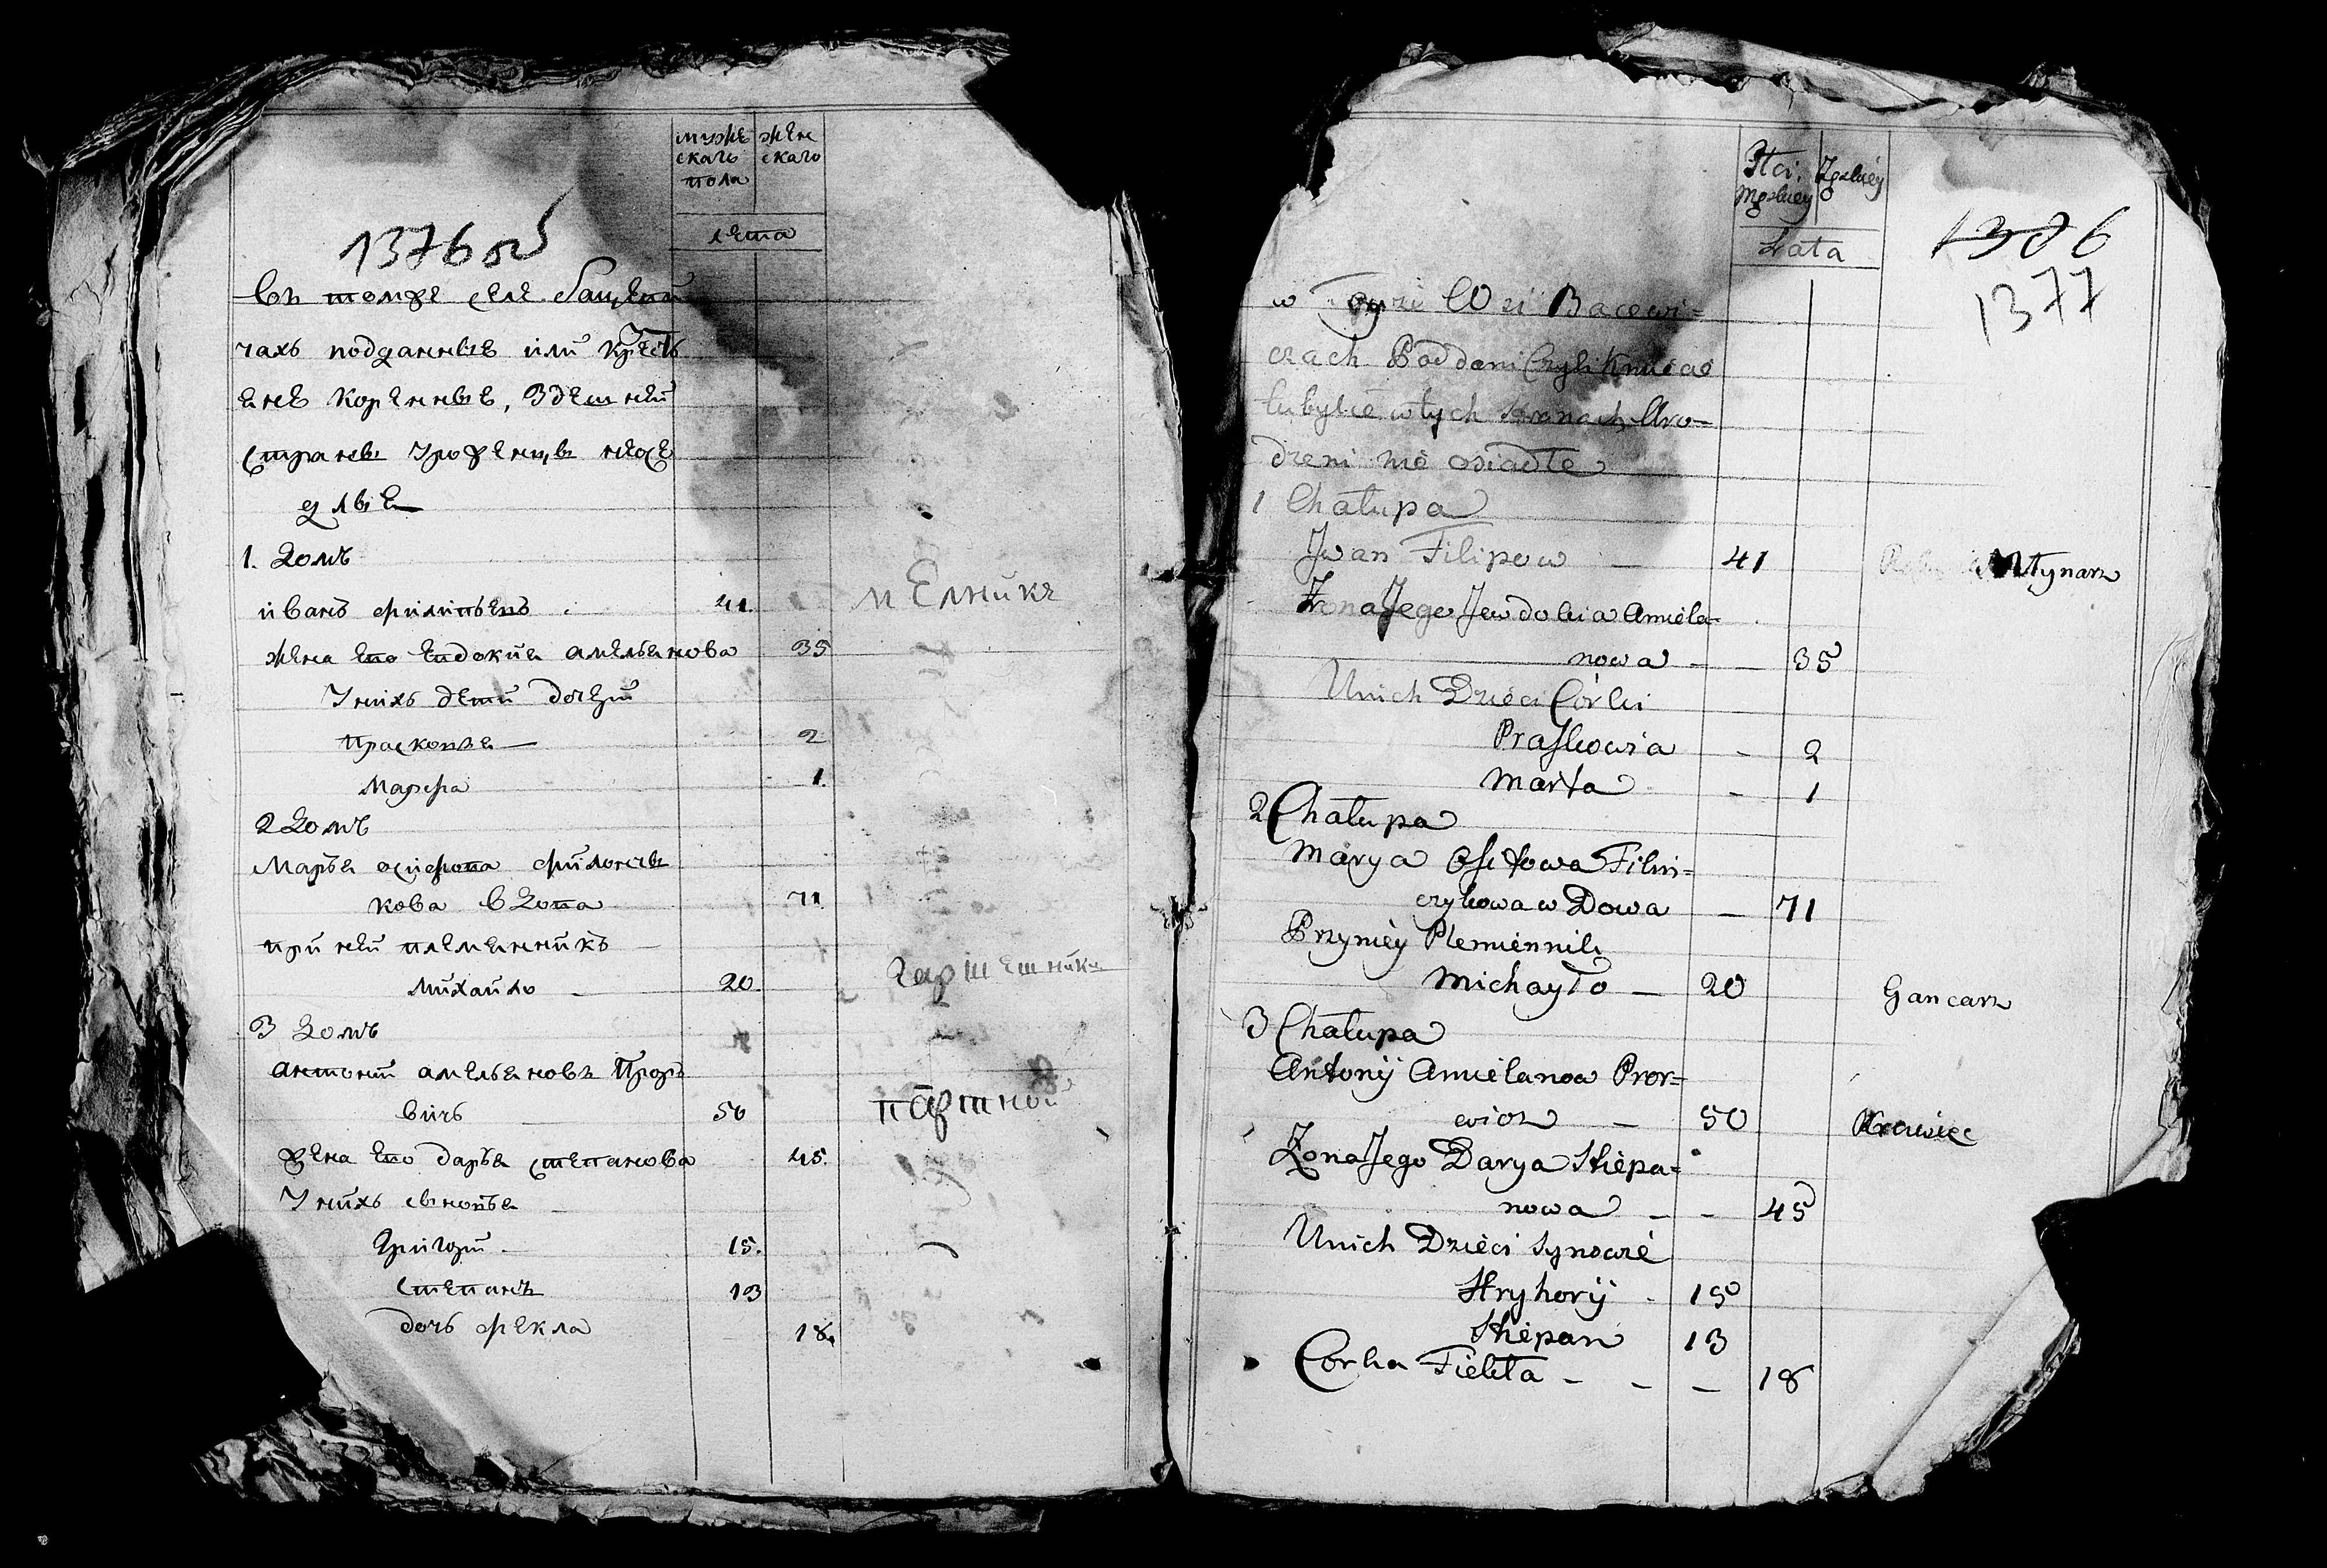 муже
скаго
пола
жен
скаго
лета
1376 об
Въ томже селе Бацеви
чахъ подданные или кресть
яне коренные, Здешней
страны Урожденцы неосе
длые
1. Домъ
иванъ филиповъ 41.
жена его евдокия амельянова 35
У нихъ дети дочери
Прасковья — 2
Марфа 1.
2 Домъ
Марья осифова филончы
кова вдова 71
при ней племянникъ —
Михайло — 20
3 Домъ
антоній амельяновъ Прор
вичъ 50
жена его дарья степанова 45.
У нихъ сыновья
Григорій 15.
Степанъ 13
дочь фекла 18.
мелникъ
гаршешникъ
партной
Płci.
Męskiey
Żeskiey
Lata
1386
1377
w Teyże Wsi Bacewi=
czach Poddani Czyli Kmiecie
tubylcé w tych stronach Uro=
dzeni nie osiadłe
1 Chałupa
Jwan Filipow — 41
Młynarz
Zona Jego Jewdokia Amiela=
nowa — — 35
Unich Dzieci Córki
Praskowia - 2
Marta - 1
2 Chałupa
Marya Osifowa Filin=
czykowa wDowa — 71
Przyniéy Plemiennik
Michayło — 20
Gancarz
3 Chałupa
Antonÿ Amielanow Pror=
wicz — 50
Krawiec
Zona Jego Darya Stiepa=
nowa — - 45
Unich Dzieci Synowié
Hryhorÿ - 15
Stiepan 13
Corka Fiekta - - — 18